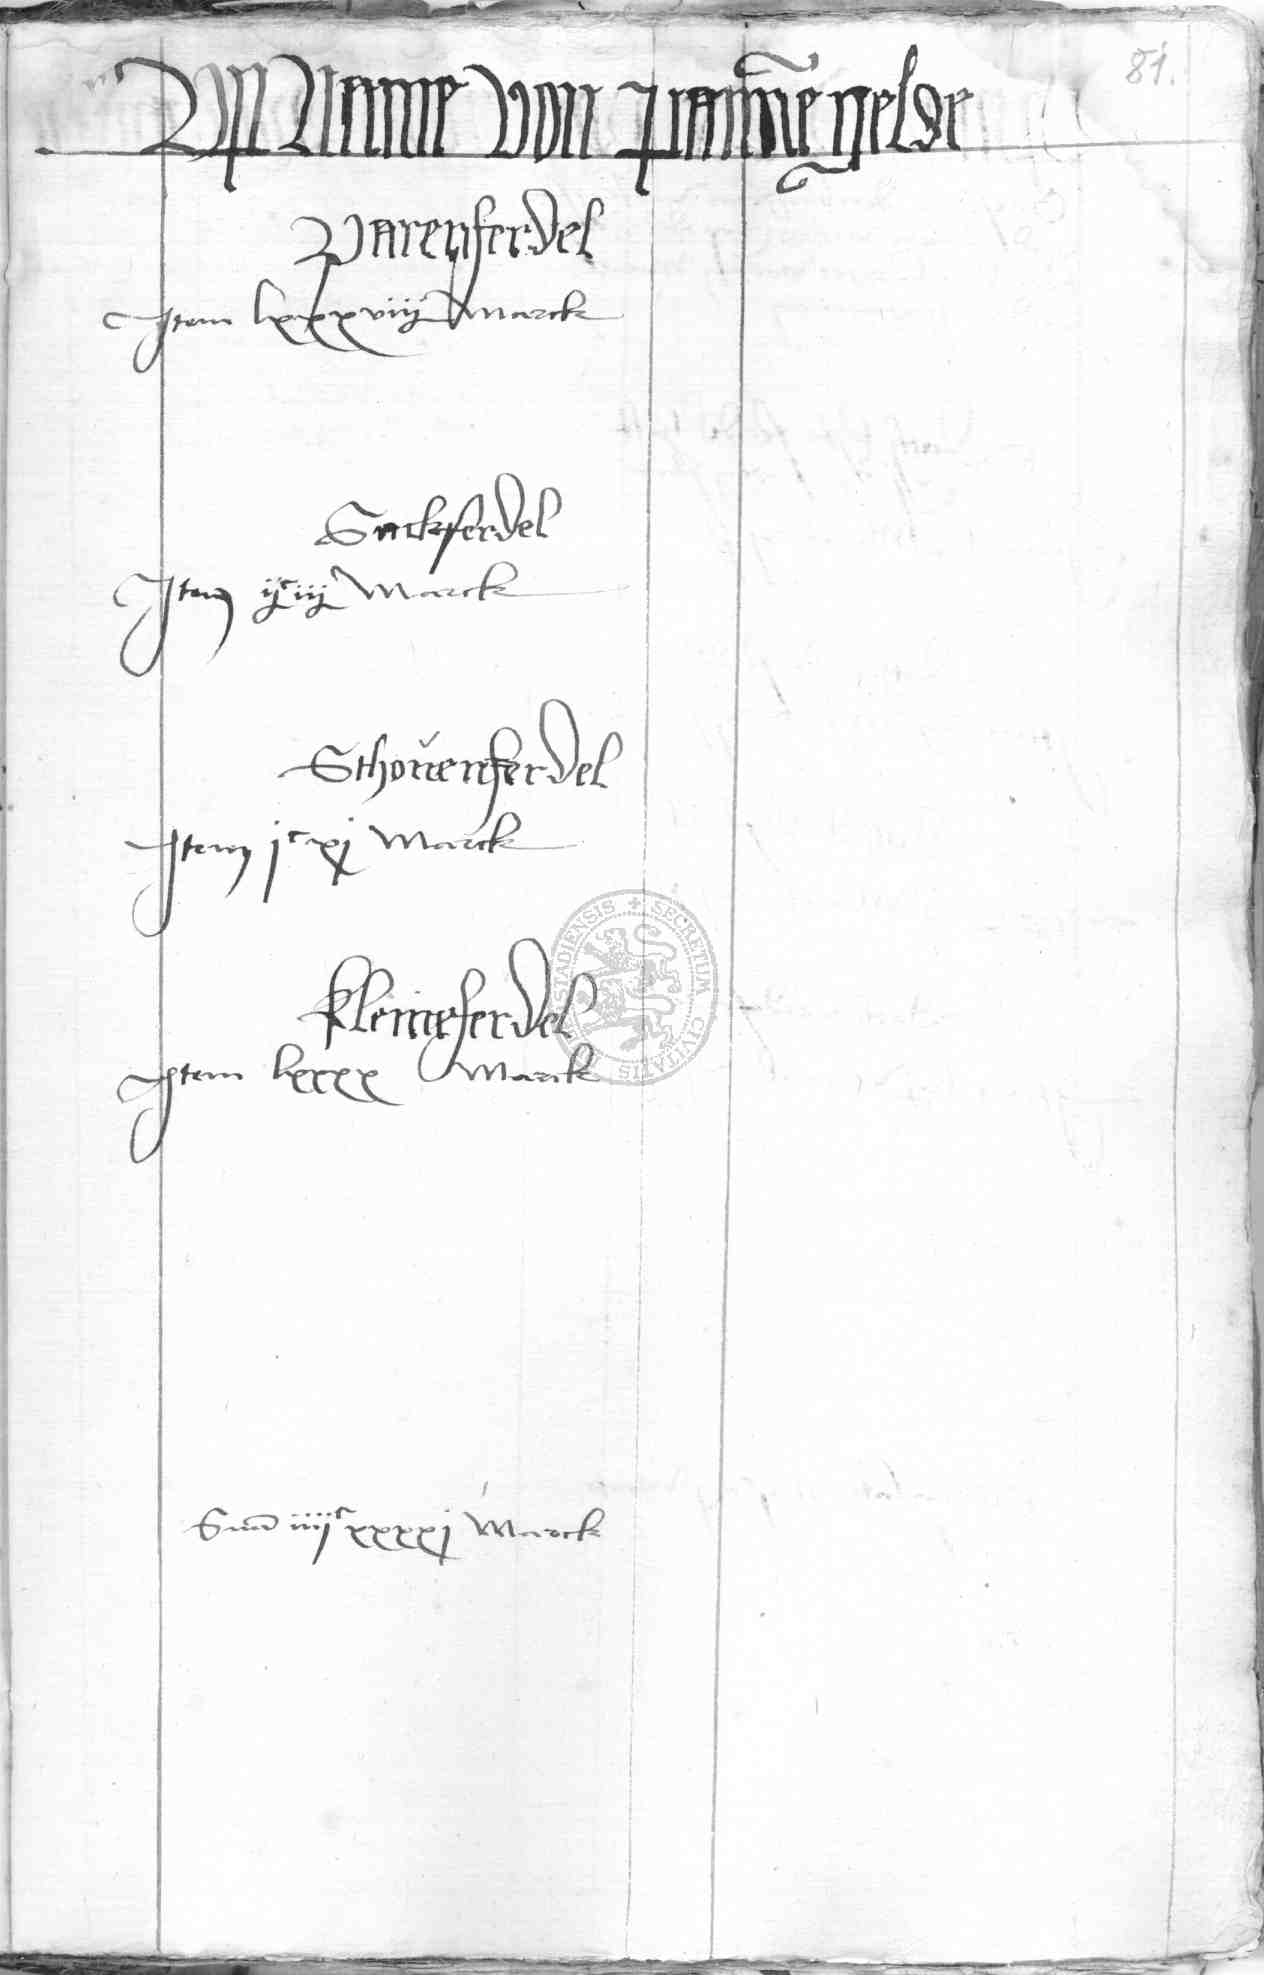 81.
Vp Name von pannegelde
Parenferdel
Item lxxxviij Marck
Sackferdel
Item ijc iij Marck
Schovenferdel
Item jc xj Marck
Kleineferdel
Item lxxxx Marck
Suma iiijc xxxxj Marck
SECRETUM CIVITATIS